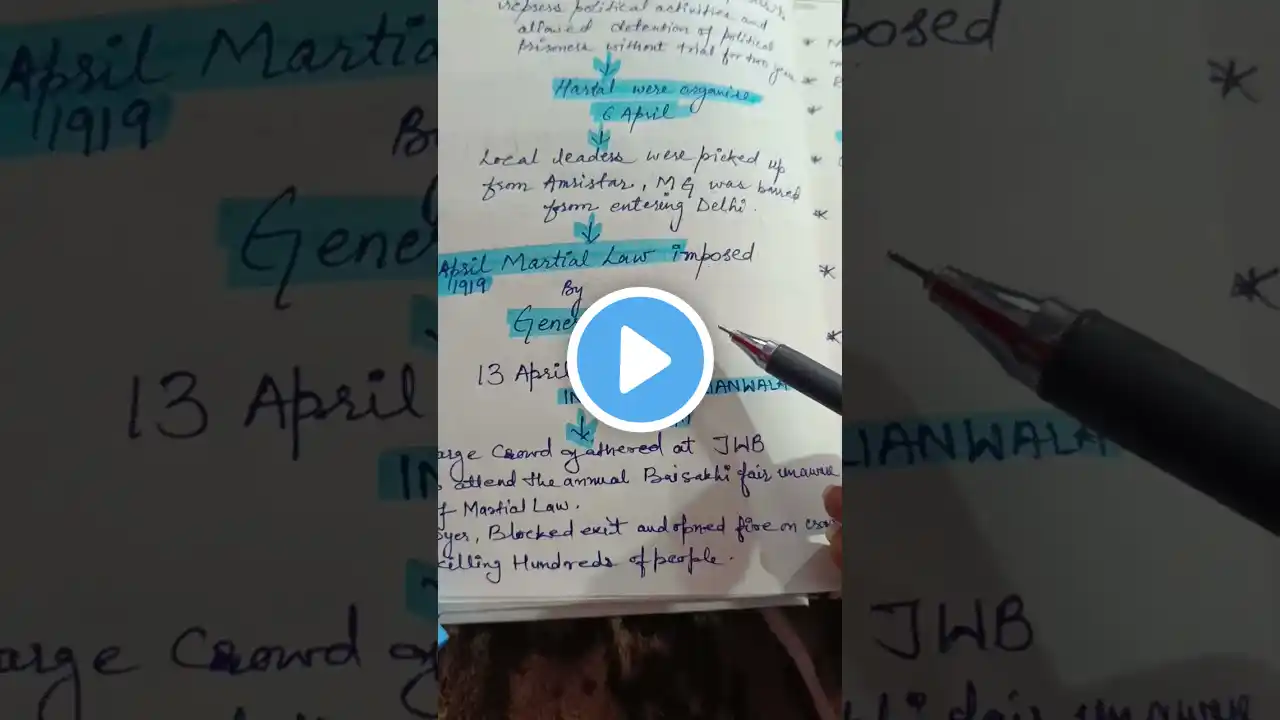 repress political activities and
allowed detention of political
prisoners without trial for two
Hartal were organise
6 April
Local leaders were picked up
from Amristar, MG was barred
from entering Delhi.
April Martial Law imposed
1919
By
Gene
13 April
IN LIANWALA
arge Crowd gathered at JWB
attend the annual Baisakhi fair unaware
of Martial Law.
yer, Blocked exit and opned fire on
killing Hundreds of people.